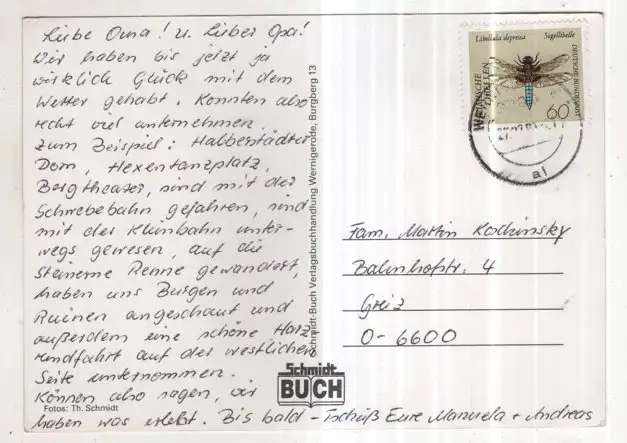 Liebe Oma! u. Lieber Opa!
Wir haben bis jetzt ja
wirklich Glück mit dem
Wetter gehabt. Konnten also
recht viel unternehmen.
Zum Beispiel: Halberstädter
Dom, Hexentanzplatz,
Bergtheater, sind mit der
Schwebebahn gefahren, sind
mit der Kleinbahn unter-
wegs gewesen, auf die
Steinerne Renne gewandert,
haben uns Burgen und
Ruinen angeschaut und
außerdem eine schöne Harz-
rundfahrt auf der westlichen
Seite unternommen.
Können also sagen, wir
haben was erlebt. Bis bald - Tschüß Eure Manuela + Andreas
Fotos: Th. Schmidt
Schmidt-Buch Verlagsbuchhandlung Wernigerode, Burgberg 13
Schmidt
BUCH
Libellula depressa Segellibelle
DEUTSCHE BUNDESPOST
LIBELLEN
60
a1
Fam. Martin
Bahnhofstr. 4
Greiz
O-6600